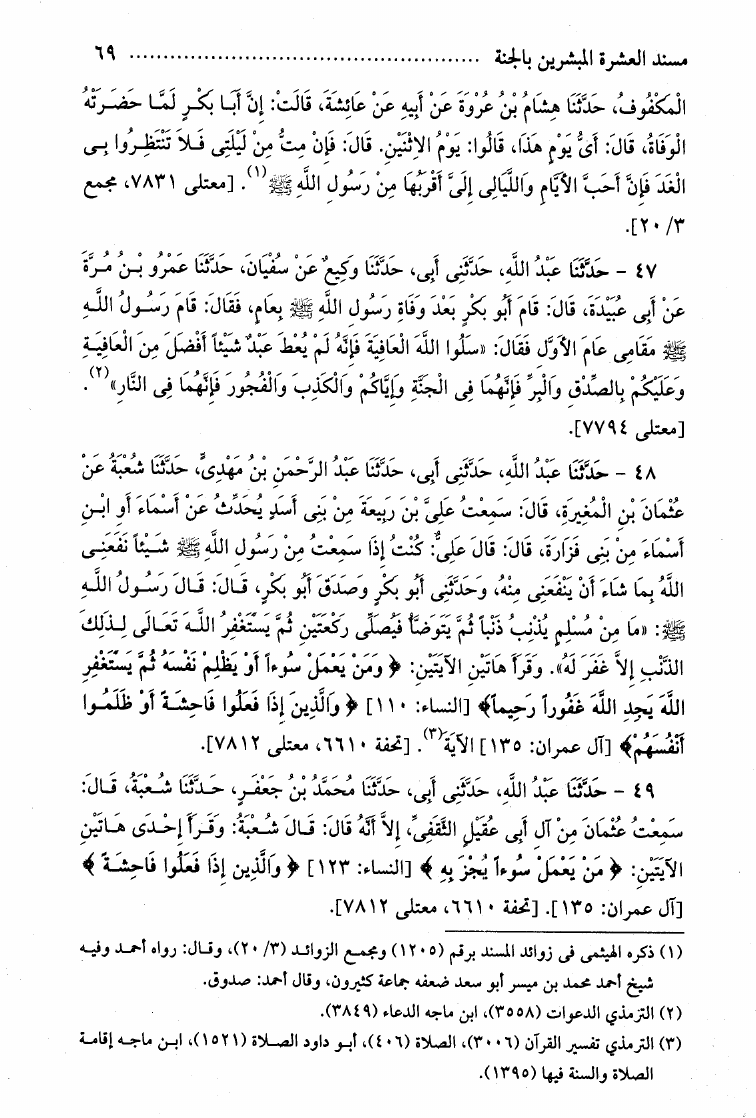 مسند العشرة المبشرين بالجنة ................................................ ٦٩
الْمَكْفُوفُ، حَدَّثَنَا هِشَامُ بْنُ عُرْوَةَ عَنْ أَبِيهِ عَنْ عَائِشَةَ، قَالَتْ: إِنَّ أَبَا بَكْرٍ لَمَّا حَضَرَتْهُ
الْوَفَاةُ، قَالَ: أَىُّ يَوْمٍ هَذَا، قَالُوا: يَوْمُ الاِثْنَيْنِ. قَالَ: فَإِنْ مِتُّ مِنْ لَيْلَتِى فَلاَ تَنْتَظِرُوا بِى
الْغَدَ فَإِنَّ أَحَبَّ الأَيَّامِ وَاللَّيَالِى إِلَىَّ أَقْرَبُهَا مِنْ رَسُولِ اللَّهِ ﷺ(١). [معتلى ٧٨٣١، مجمع
٢٠/٣].
٤٧ - حَدَّثَنَا عَبْدُ اللَّهِ، حَدَّثَنِى أَبِى، حَدَّثَنَا وَكِيعٌ عَنْ سُفْيَانَ، حَدَّثَنَا عَمْرُو بْنُ مُرَّةَ
عَنْ أَبِى عُبَيْدَةَ، قَالَ: قَامَ أَبُو بَكْرٍ بَعْدَ وَفَاةِ رَسُولِ اللَّهِ ﷺ بِعَامٍ، فَقَالَ: قَامَ رَسُولُ اللَّهِ
ﷺ مَقَامِى عَامَ الأَوَّلِ فَقَالَ: «سَلُوا اللَّهَ الْعَافِيَةَ فَإِنَّهُ لَمْ يُعْطَ عَبْدٌ شَيْئاً أَفْضَلَ مِنَ الْعَافِيَةِ
وَعَلَيْكُمْ بِالصِّدْقِ وَالْبِرِّ فَإِنَّهُمَا فِى الْجَنَّةِ وَإِيَّاكُمْ وَالْكَذِبَ وَالْفُجُورَ فَإِنَّهُمَا فِى النَّارِ»(٢).
[معتلى ٧٧٩٤].
٤٨ - حَدَّثَنَا عَبْدُ اللَّهِ، حَدَّثَنِى أَبِى، حَدَّثَنَا عَبْدُ الرَّحْمَنِ بْنُ مَهْدِىٍّ، حَدَّثَنَا شُعْبَةُ عَنْ
عُثْمَانَ بْنِ الْمُغِيرَةِ، قَالَ: سَمِعْتُ عَلِىَّ بْنَ رَبِيعَةَ مِنْ بَنِى أَسَدٍ يُحَدِّثُ عَنْ أَسْمَاءَ أَوِ ابْنِ
أَسْمَاءَ مِنْ بَنِى فَزَارَةَ، قَالَ: قَالَ عَلِىٌّ: كُنْتُ إِذَا سَمِعْتُ مِنْ رَسُولِ اللَّهِ ﷺ شَيْئاً نَفَعَنِى
اللَّهُ بِمَا شَاءَ أَنْ يَنْفَعَنِى مِنْهُ، وَحَدَّثَنِى أَبُو بَكْرٍ وَصَدَقَ أَبُو بَكْرٍ، قَالَ: قَالَ رَسُولُ اللَّهِ
ﷺ: «مَا مِنْ مُسْلِمٍ يُذْنِبُ ذَنْباً ثُمَّ يَتَوَضَّأُ فَيُصَلِّى رَكْعَتَيْنِ ثُمَّ يَسْتَغْفِرُ اللَّهَ تَعَالَى لِذَلِكَ
الذَّنْبِ إِلاَّ غَفَرَ لَهُ». وَقَرَأَ هَاتَيْنِ الآيَتَيْنِ: ﴿ وَمَنْ يَعْمَلْ سُوءاً أَوْ يَظْلِمْ نَفْسَهُ ثُمَّ يَسْتَغْفِرِ
اللَّهَ يَجِدِ اللَّهَ غَفُوراً رَحِيماً﴾ [النساء: ١١٠] ﴿ وَالَّذِينَ إِذَا فَعَلُوا فَاحِشَةً أَوْ ظَلَمُوا
أَنْفُسَهُمْ﴾ [آل عمران: ١٣٥] الآيَةَ(٣). [تحفة ٦٦١٠، معتلى ٧٨١٢].
٤٩ - حَدَّثَنَا عَبْدُ اللَّهِ، حَدَّثَنِى أَبِى، حَدَّثَنَا مُحَمَّدُ بْنُ جَعْفَرٍ، حَدَّثَنَا شُعْبَةُ، قَالَ:
سَمِعْتُ عُثْمَانَ مِنْ آلِ أَبِى عُقَيْلٍ الثَّقَفِىِّ، إِلاَّ أَنَّهُ قَالَ: قَالَ شُعْبَةُ: وَقَرَأَ إِحْدَى هَاتَيْنِ
الآيَتَيْنِ: ﴿ مَنْ يَعْمَلْ سُوءاً يُجْزَ بِهِ ﴾ [النساء: ١٢٣] ﴿ وَالَّذِينَ إِذَا فَعَلُوا فَاحِشَةً ﴾
[آل عمران: ١٣٥]. [تحفة ٦٦١٠، معتلى ٧٨١٢].
(١) ذكره الهيثمى فى زوائد المسند برقم (١٢٠٥) ومجمع الزوائد (٢٠/٣)، وقال: رواه أحمد وفيه
شيخ أحمد محمد بن ميسر أبو سعد ضعفه جماعة كثيرون، وقال أحمد: صدوق.
(٢) الترمذي الدعوات (٣٥٥٨)، ابن ماجه الدعاء (٣٨٤٩).
(٣) الترمذي تفسير القرآن (٣٠٠٦)، الصلاة (٤٠٦)، أبو داود الصلاة (١٥٢١)، ابن ماجه إقامة
الصلاة والسنة فيها (١٣٩٥).